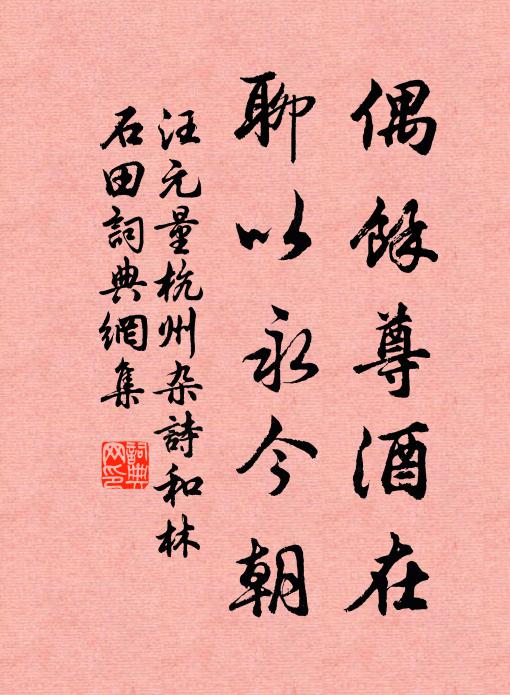 偶餘尊酒在
聊以永今朝
汪元量杭州杂詩和林
石田詞典網集
詞典网印